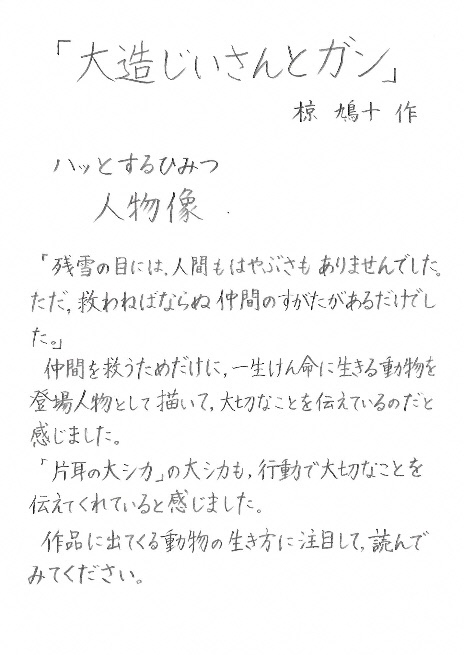 「大造じいさんとガン」
椋 鳩十 作
ハッとするひみつ
人物像
「残雪の目には、人間もはやぶさもありませんでした。
ただ、救わねばならぬ仲間のすがたがあるだけでし
た。」
仲間を救うためだけに、一生けん命に生きる動物を
登場人物として描いて、大切なことを伝えているのだと
感じました。
「片耳の大シカ」の大シカも、行動で大切なことを
伝えてくれていると感じました。
作品に出てくる動物の生き方に注目して、読んで
みてください。